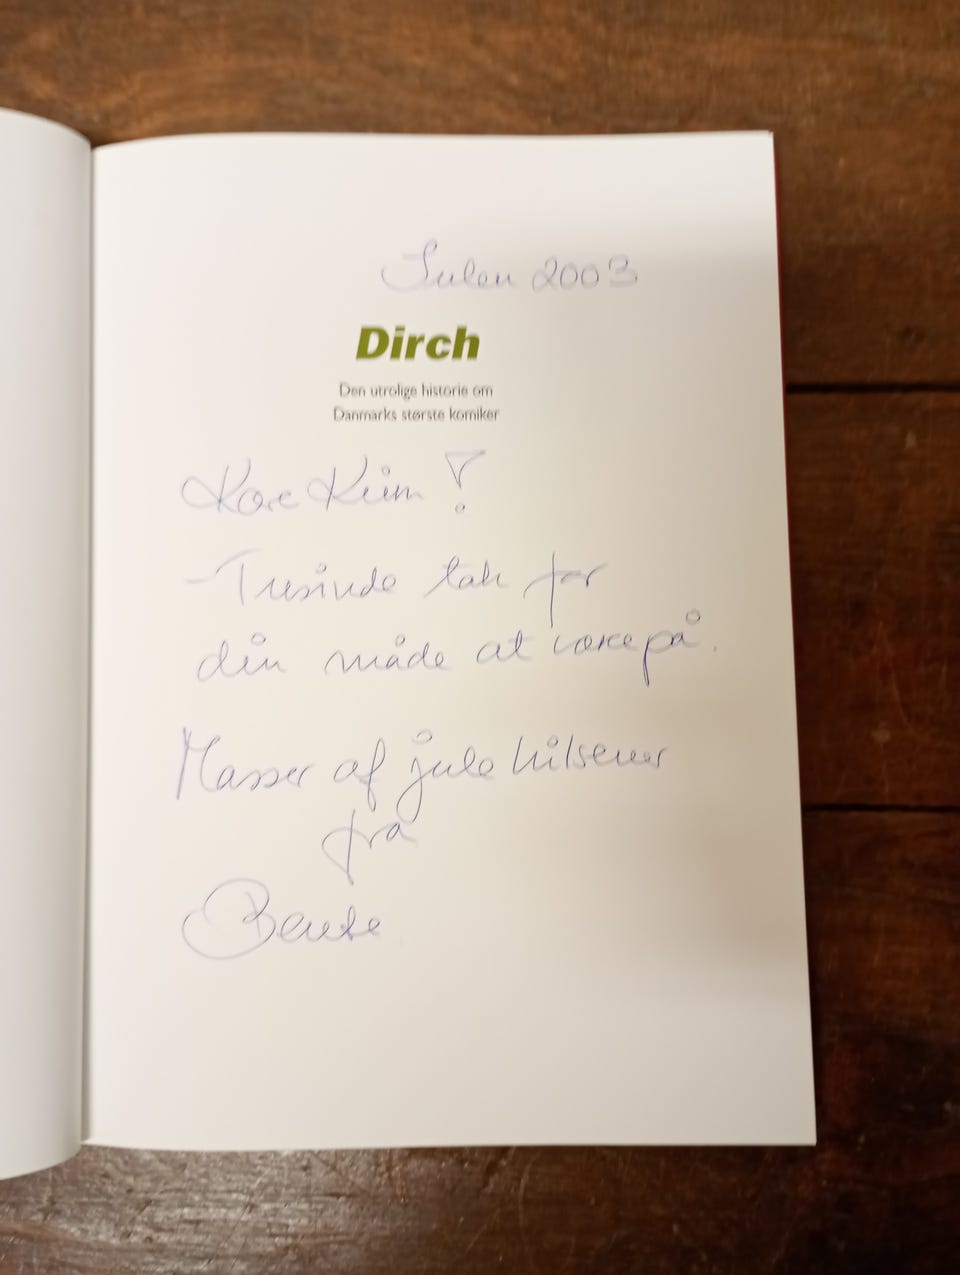 Julen 2003
Dirch
Den utrolige historie om
Danmarks største komiker
Kære Kim!
- Tusinde tak for
din måde at være på.
Masser af jule hilsener
fra
Bente